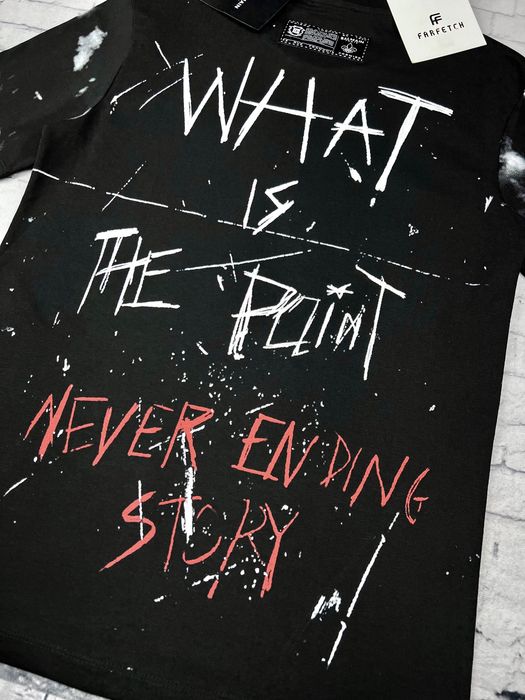 FARFETCH
WHAT
IS
THE POINT
NEVER ENDING
STORY